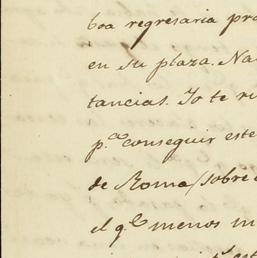 boa regresaria pro
en su plaza. Na
tancias. Yo te
p.ª conseguir este
de Roma / sobre
el q.e menos